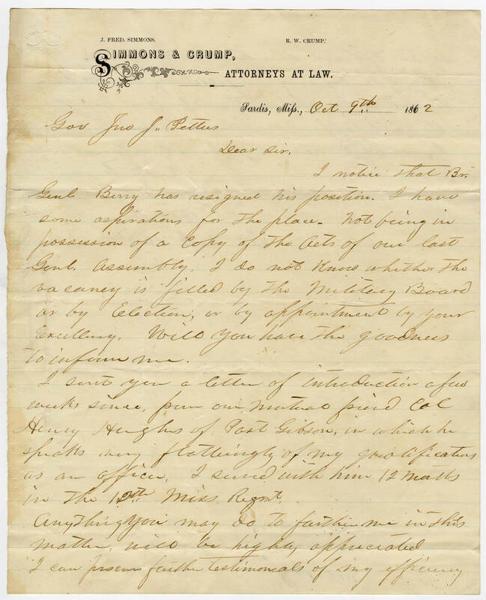 J. FRED. SIMMONS.
R. W. CRUMP.
SIMMONS & CRUMP,
ATTORNEYS AT LAW.
Sardis, Miss., Oct 9th 1862
Gov Jno J. Pettus
Dear Sir,
I notice that Br.
Genl Berry has resigned his position. I have
some aspirations for the place. Not being in
possession of a Copy of the Acts of our last
Genl. Assembly, I do not Know whether the
vacancy is filled by the Military Board
or by Election, or by appointment by your
Excellency. Will you have the goodness
to inform me.
I sent you a letter of introduction a few
weeks since, from our mutual friend Col
Henry Hughes of Port Gibson, in which he
speaks very flatteringly of my qualifications
as an officer, I served with him 12 Months
in the 12th Miss Regmt.
Anything you may do to further me in this
matter, will be highly appreciated
I can procure further testimonials of my efficiency